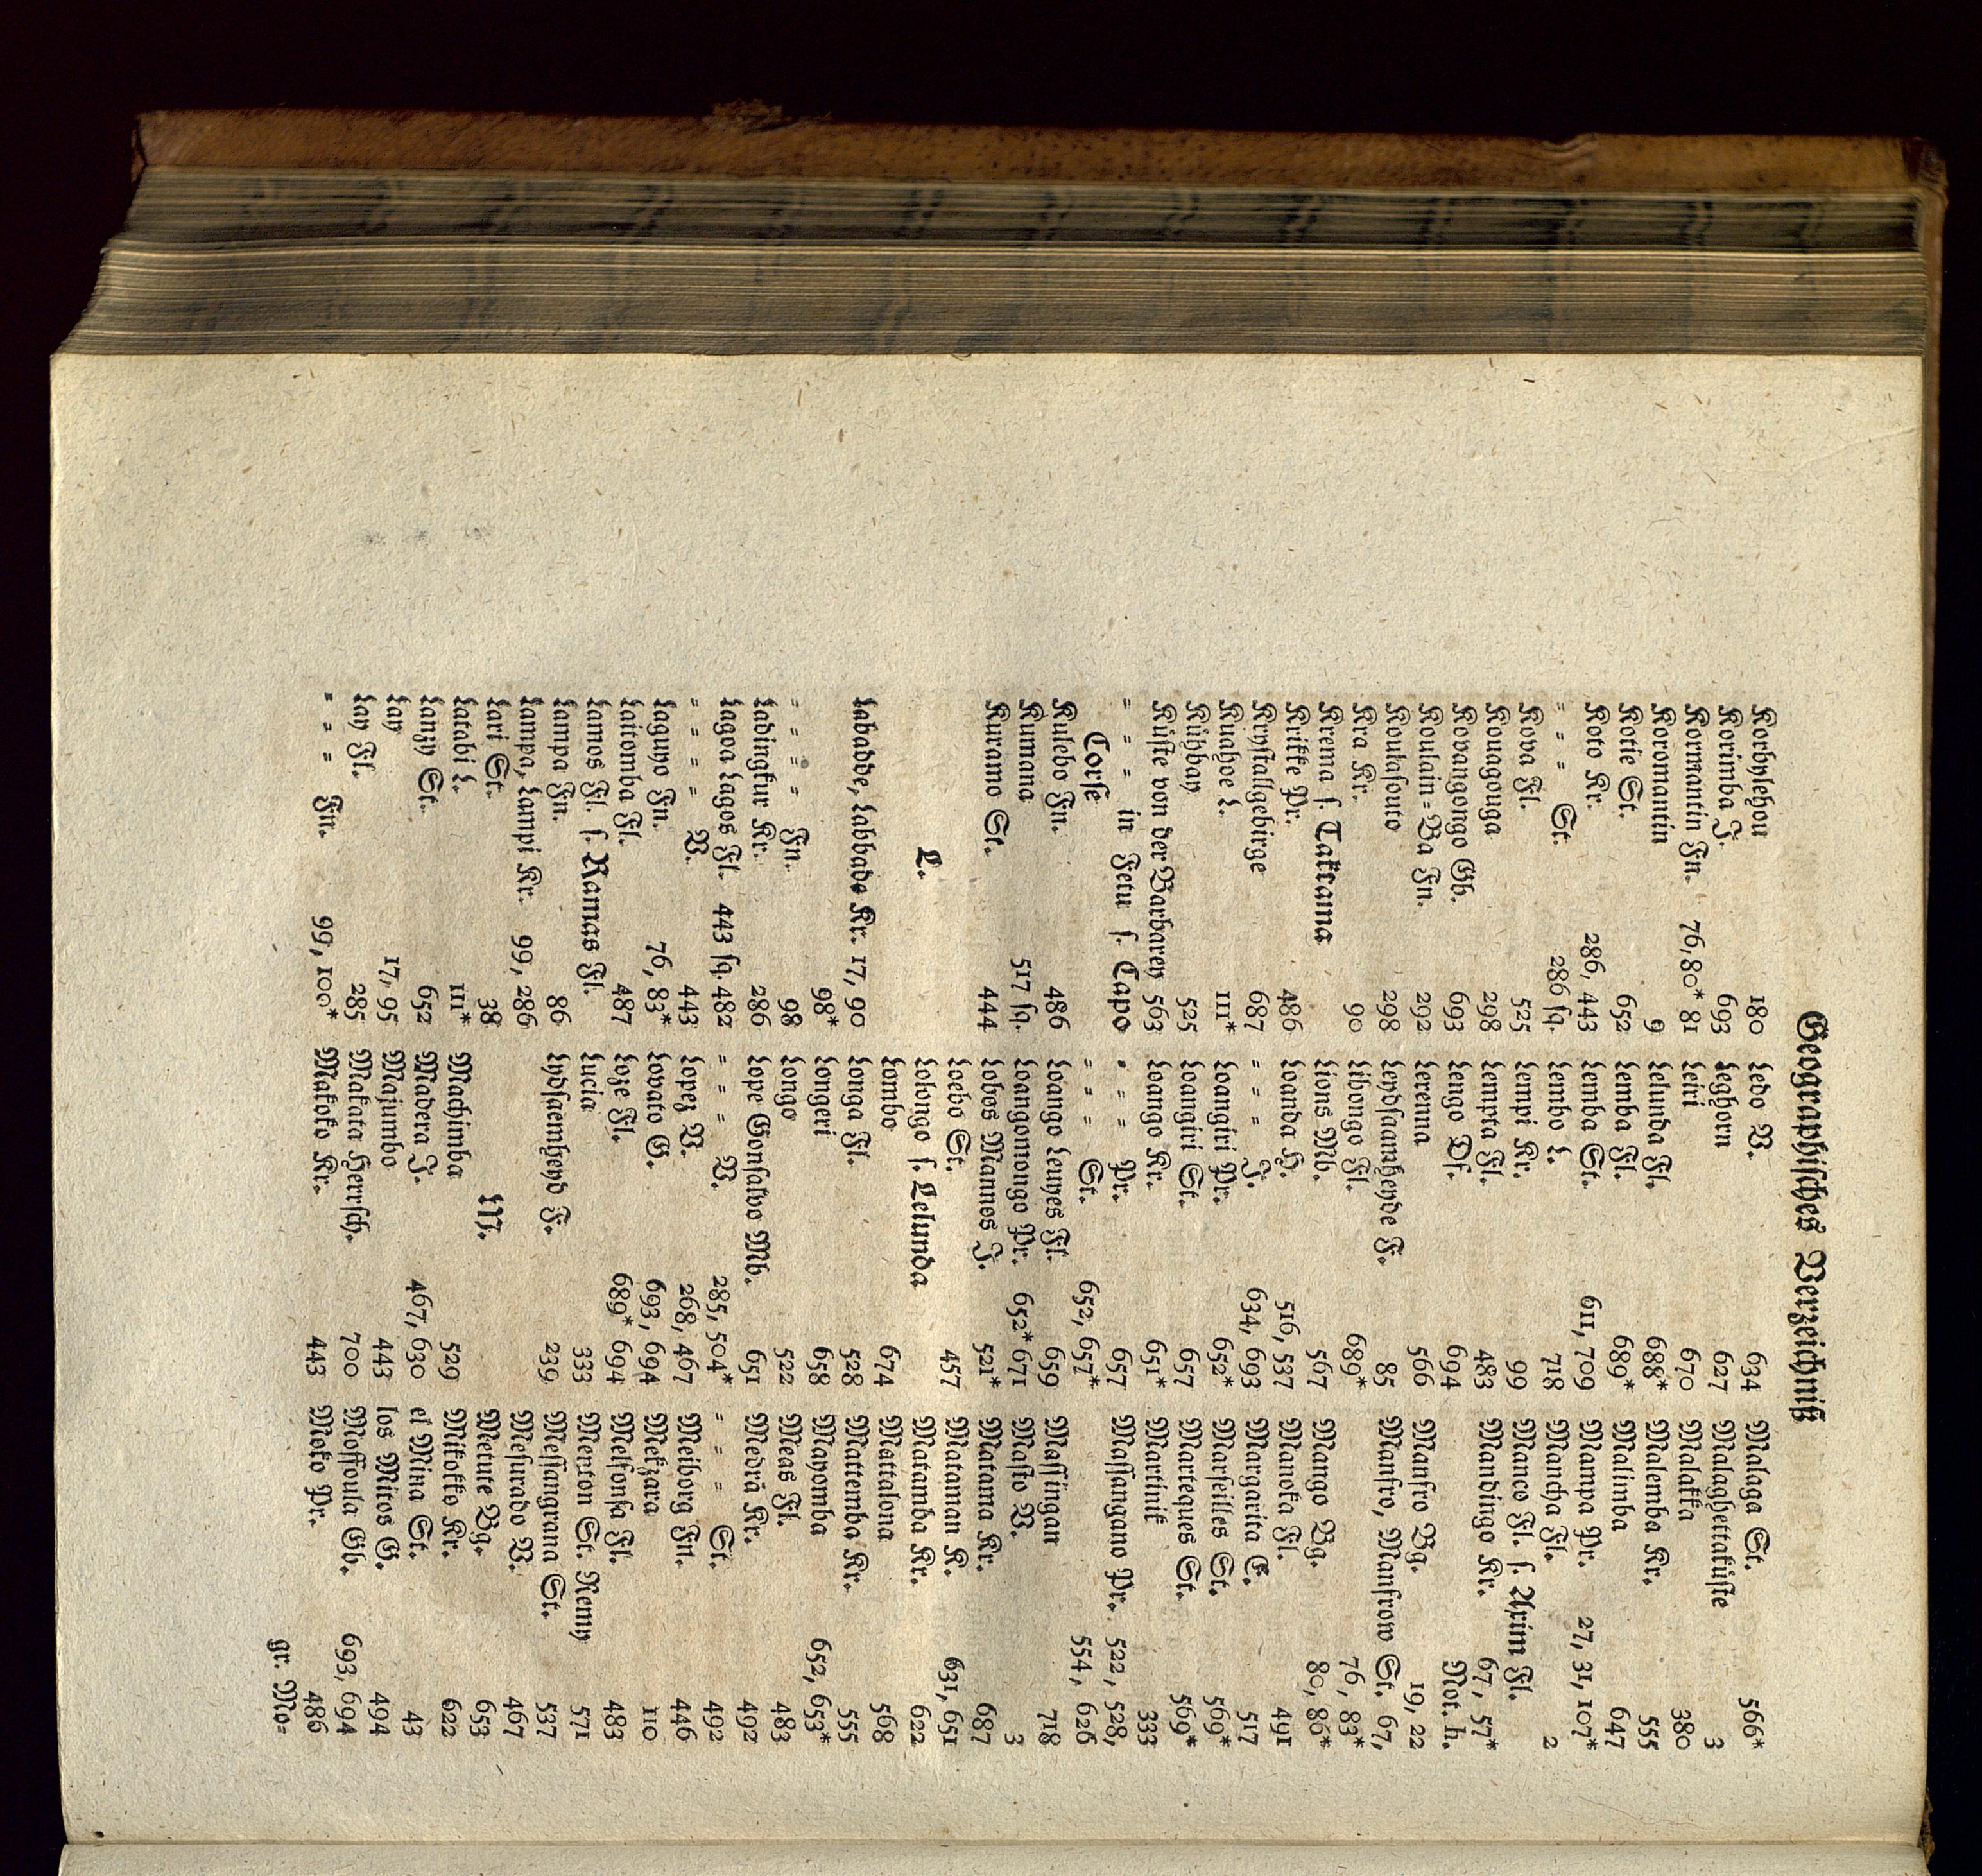 Geographisches Verzeichniß
Korbylehou 180
Korimba J. 693
Kormantin Fn. 76, 80* 81
Koromantin 9
Kotie St. 652
Koto Kr. 286, 443
= = = St. 286 sq.
Kova Fl. 525
Kouagouga 298
Kovangongo Gb. 693
Koulain=Ba Fn. 292
Koulasouto 298
Kra Kr. 90
Krema s. Takrama
Krikke Pr. 486
Krystallgebirge 687
Kuahoe L. 111*
Kühbay 525
Küste von der Barbarey 563
= = = in Fetu s. Capo
Corse
Kulebo Fn. 486
Kumana 517 sq.
Kuramo St. 444
L.
Labadde, Labbade Kr. 17, 90
98*
= = = = Fn. 98
Ladingkur Kr. 286
Lagoa Lagos Fl. 443 sq. 482
= = = = V. 443
Laguyo Fn. 76, 83*
Laitomba Fl. 487
Lamos Fl. s. Ramas Fl.
Lampa Fn. 86
Lampa, Lampi Kr. 99, 286
Lari St. 38
Latabi L. 111*
Lanzy St. 652
Lay 17, 95
Lay Fl. 285
= = = Fn. 99, 100*
Ledo V. 634
Leghorn 627
Leiri 670
Lelunda Fl. 688*
Lemba Fl. 689*
Lemba St. 611, 709
Lembo L. 718
Lempi Kr. 99
Lempta Fl. 483
Lengo Df. 694
Lerenna 566
Leydsaamheyde F. 85
Libongo Fl. 689*
Lions Mb. 567
Loanda H. 516, 537
= = = J. 634, 693
Loangiri Pr. 652*
Loangiri St. 657
Loango Kr. 651*
= = = Pr. 657
= = = St. 652, 657*
Loango Leuyes Fl. 659
Loangomongo Pr. 652* 671
Lobos Mannos J. 521*
Loebo St. 457
Lolongo s. Lelunda
Lombo 674
Longa Fl. 528
Longeri 658
Longo 522
Lope Gonsalvo Mb. 651
= = = = V. 285, 504*
Lopez V. 268, 467
Lovato G. 693, 694
Loze Fl. 689* 694
Lucia 333
Lydsaemheyd F. 239
M.
Machimba 529
Madera J. 467, 630
Majumbo 443
Makata Herrsch. 700
Makoko Kr. 443
Malaga St. 566*
Malaghettaküste 3
Malakka 380
Malemba Kr. 555
Malimba 647
Mampa Pr. 27, 31, 107*
Mancha Fl. 2
Manco Fl. s. Axim Fl.
Mandingo Kr. 67, 57*
Not. h.
Manfro Bg. 19, 22
Manfro, Manfrow St. 67,
76, 83*
Mango Bg. 80, 86*
Manoka Fl. 491
Margarita E. 517
Marseilles St. 569*
Marteques St. 569*
Martinik 333
Massangano Pr. 522, 528,
554, 626
Massingan 718
Masto V. 3
Matama Kr. 687
Mataman K. 631, 651
Matamba Kr. 622
Mattalona 568
Mattemba Kr. 555
Mayomba 652, 653*
Meas Fl. 483
Medrä Kr. 492
= = = St. 492
Meiborg Fn. 446
Mekzara 110
Melfonsa Fl. 483
Menton St. Remy 571
Messangrana St. 537
Mesurado V. 467
Metute Bg. 653
Mikokko Kr. 622
el Mina St. 43
los Mitos G. 494
Mossoula Gb. 693, 694
Moko Pr. 486
gr. Mo=